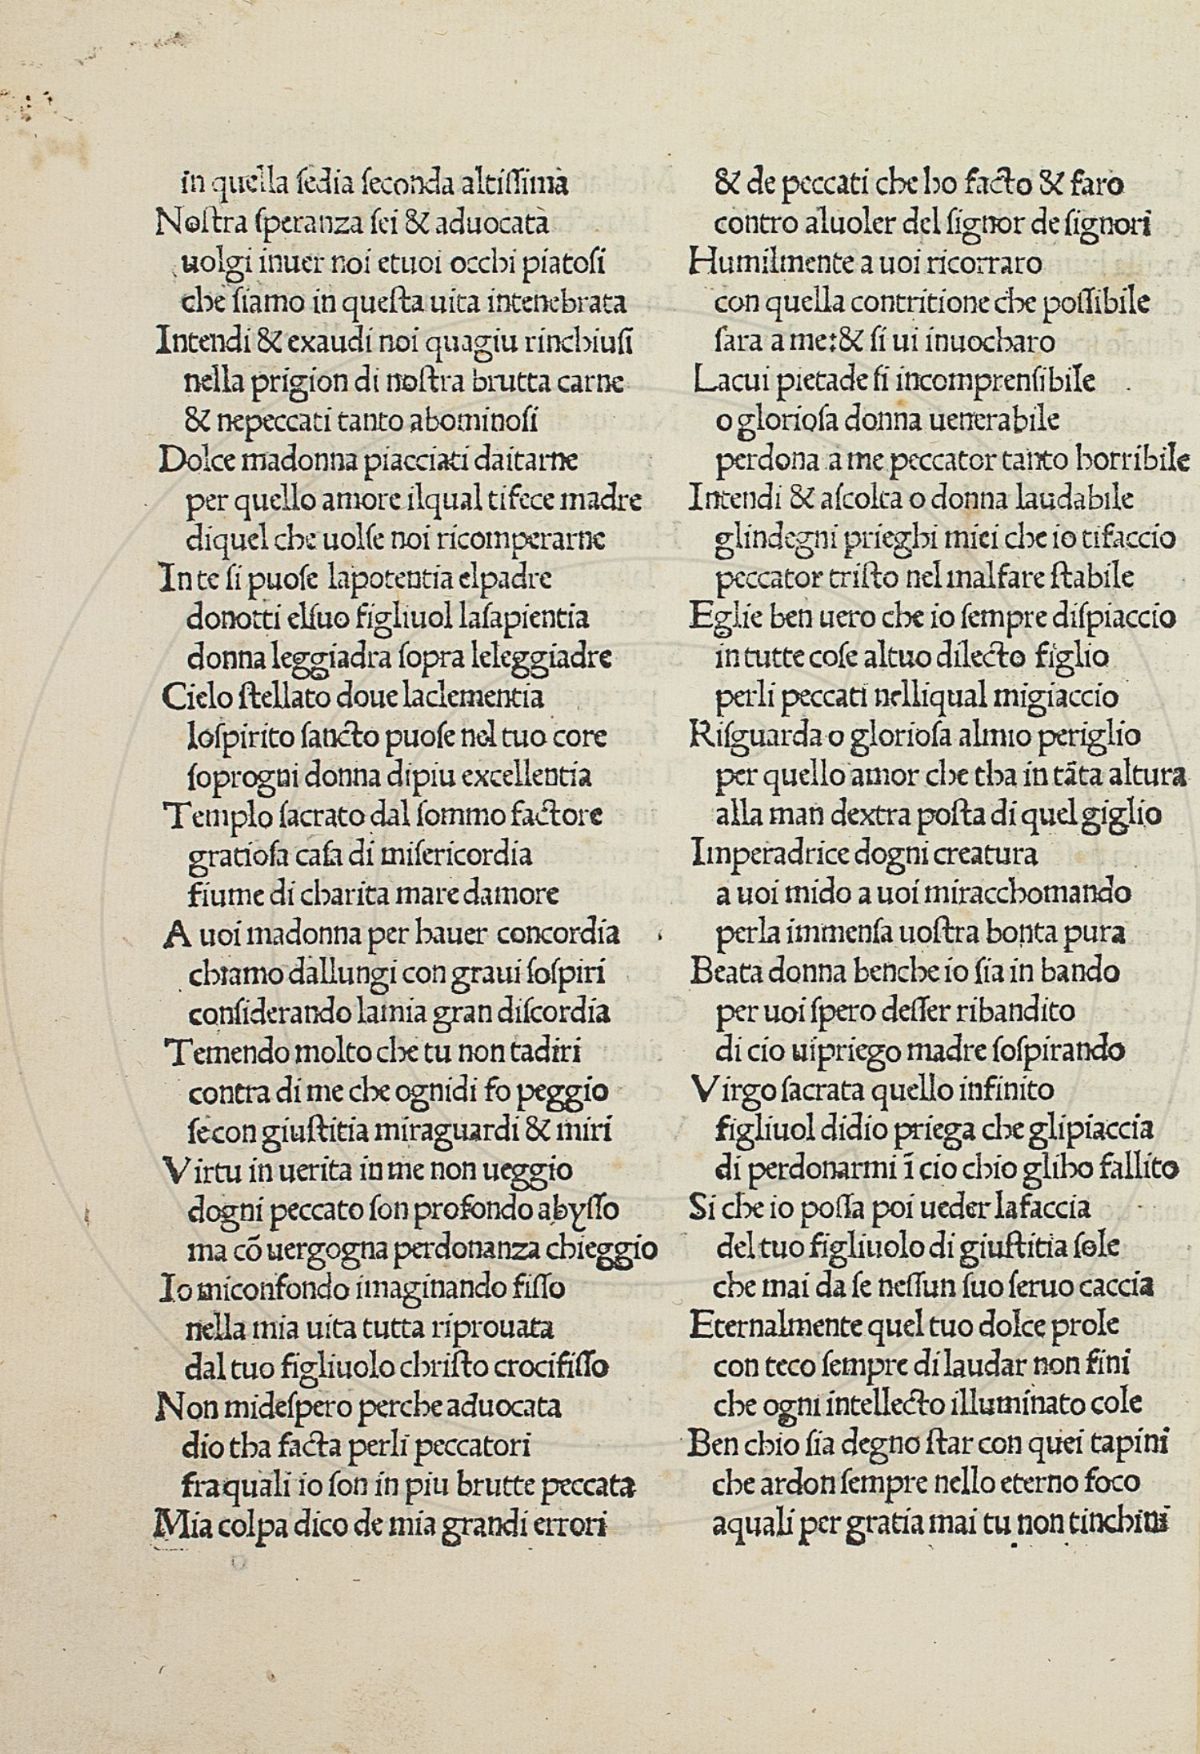 in quella ſedia ſeconda altiſſima
Noſtra ſperanza ſei & aduocata
uolgi inuer noi etuoi occhi piatoſi
che ſiamo in queſta uita intenebrata
Intendi & exaudi noi quagiu rinchiuſi
nella prigion di noſtra brutta carne
& nepeccati tanto abominoſi
Dolce madonna piacciati daitarne
per quello amore ilqual tifece madre
diquel che uolſe noi ricomperarne
In te ſi puoſe lapotentia elpadre
donotti elſuo figliuol laſapientia
donna leggiadra ſopra leleggiadre
Cielo ſtellato doue laclementia
loſpirito sancto puoſe nel tuo core
ſoprogni donna dipiu excellentia
Templo ſacrato dal ſommo factore
gratioſa caſa di miſericordia
fiume di charita mare damore
A uoi madonna per hauer concordia
chiamo dallungi con graui ſoſpiri
conſiderando lamia gran diſcordia
Temendo molto che tu non tadiri
contra di me che ognidi fo peggio
ſecon giuſtitia miraguardi & miri
Virtu in uerita in me non ueggio
dogni peccato ſon profondo abyſſo
ma cō uergogna perdonanza chieggio
Io miconfondo imaginando fiſſo
nella mia uita tutta riprouata
dal tuo figliuolo chriſto crocifiſſo
Non mideſpero perche aduocata
dio tha facta perli peccatori
fraquali io ſon in piu brutte peccata
Mia colpa dico de mia grandi errori
& de peccati che ho facto & faro
contro aluoler del ſignor de ſignori
Humilmente a uoi ricorraro
con quella contritione che poſſibile
ſara a me:& ſi ui inuocharo
Lacui pietade ſi incomprenſibile
o glorioſa donna uenerabile
perdona a me peccator tanto horribile
Intendi & aſcolta o donna laudabile
glindegni prieghi miei che io tifaccio
peccator triſto nel malfare ſtabile
Eglie ben uero che io ſempre diſpiaccio
in tutte coſe altuo dilecto figlio
perli peccati nelliqual migiaccio
Riſguarda o glorioſa almio periglio
per quello amor che tha in tāta altura
alla man dextra poſta di quel giglio
Imperadrice dogni creatura
a uoi mido a uoi miracchomando
perla immenſa uoſtra bonta pura
Beata donna benche io ſia in bando
per uoi ſpero deſſer ribandito
di cio uipriego madre ſoſpirando
Virgo ſacrata quello infinito
figliuol didio priega che glipiaccia
di perdonarmi ī cio chio gliho fallito
Si che io poſſa poi ueder lafaccia
del tuo figliuolo di giuſtitia ſole
che mai da ſe neſſun ſuo ſeruo caccia
Eternalmente quel tuo dolce prole
con teco ſempre di laudar non fini
che ogni intellecto illuminato cole
Ben chio ſia degno ſtar con quei tapini
che ardon ſempre nello eterno foco
aquali per gratia mai tu non tinchini